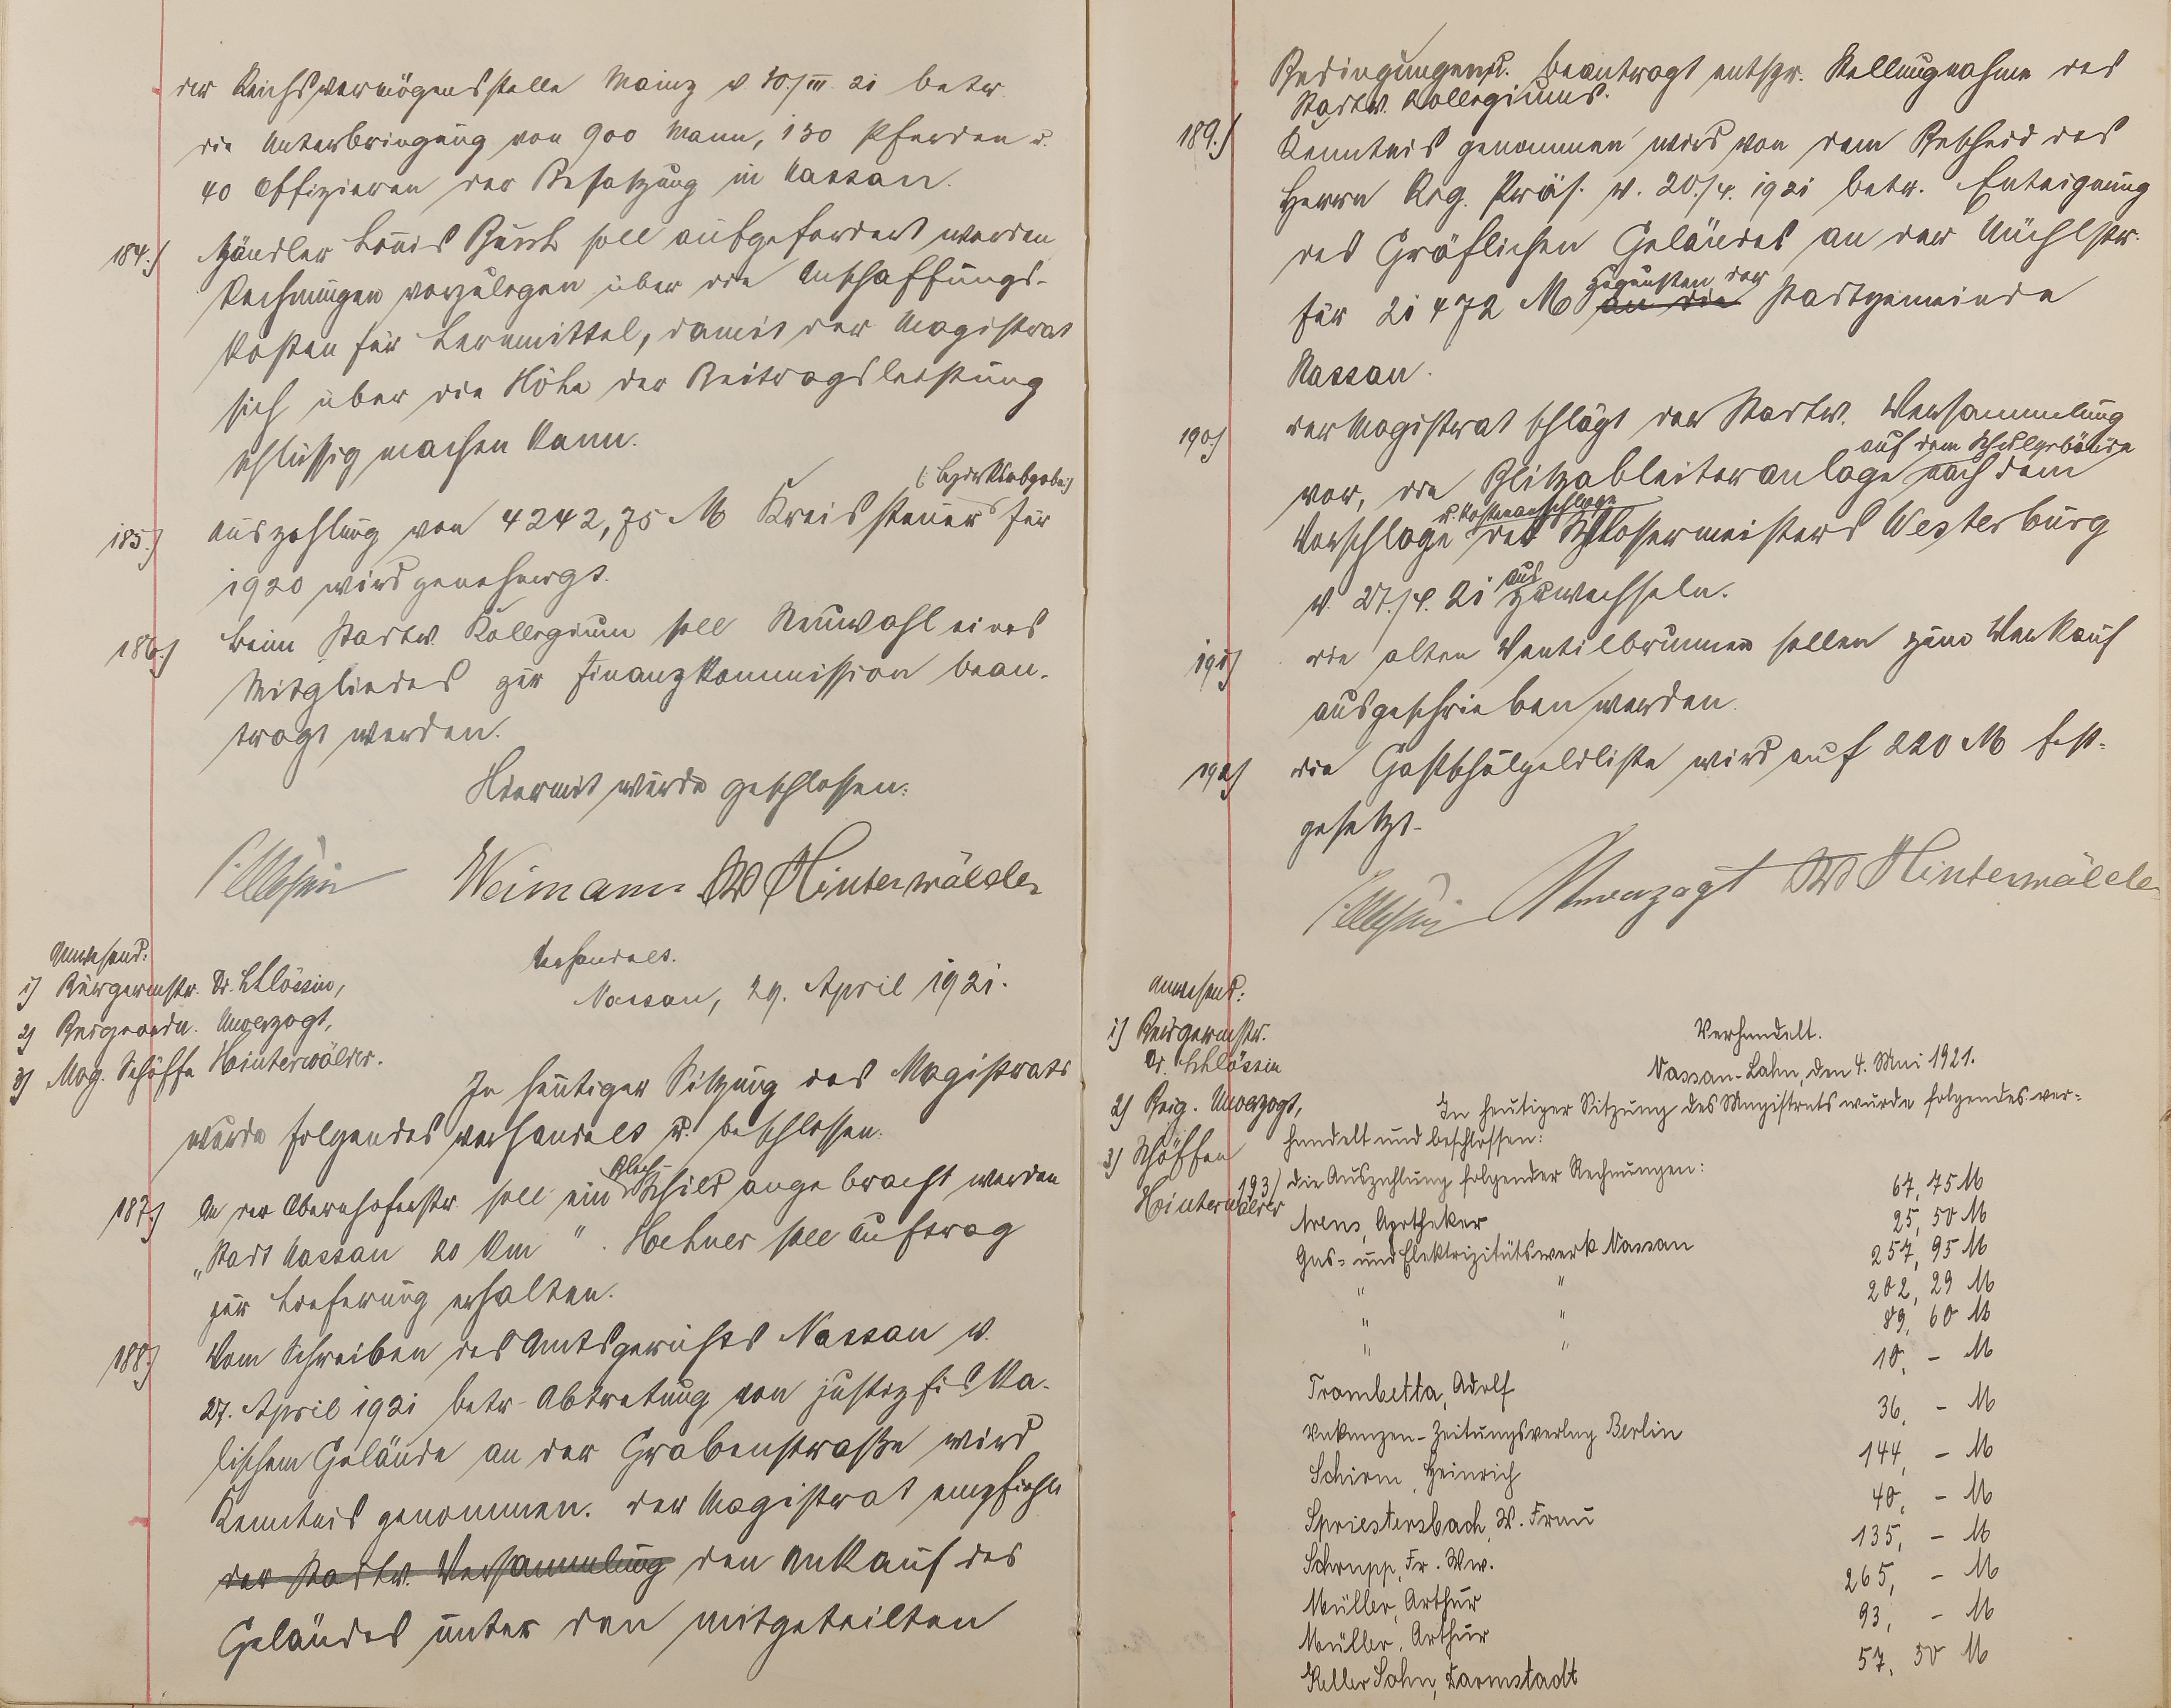 der Reichsvermögensstelle Mainz v. 30./III. 21 betr.
die Unterbringung von 900 Mann, 130 Pferden u.
40 Offizieren der Besatzung in Nassau.
184.) Händler Louis Busch soll aufgefordert werden
Rechnungen vorzulegen über die Anschaffungs-
kosten für Lernmittel, damit der Magistrat
sich über die Höhe der Beitragsleistung
schlüssig machen kann.
185.) Auszahlung von 4242,75 M Kreissteuer für
1920 wird genehmigt.
186.) Beim Stadtv. Kollegium soll Neuwahl eines
Mitgliedes zur Finanzkommission bean-
tragt werden.
Hiermit wurde geschlossen:
Weimann Hinterwälder
Anwesend:
1) Bürgermstr. Dr. Schlössin,
2) Beigeordn. Unverzagt,
3) Mag. Schöffe Hinterwälder.
Verhandelt.
Nassau, 29. April 1921.
In heutiger Sitzung des Magistrats
wurde folgendes verhandelt u. beschlossen:
187.) An der Obernhoferstr. soll ein Blech-Schild angebracht werden
„Stadt Nassau 20 km". Hehner soll Auftrag
zur Lieferung erhalten.
188.) Vom Schreiben des Amtsgerichts Nassau v.
27. April 1921 betr. Abtretung von justizfiska-
lischem Gelände an der Grabenstraße wird
Kenntnis genommen. Der Magistrat empfiehlt
der Stadtv. Versammlung den Ankauf des
Geländes unter den mitgeteilten
Bedingungen u. beantragt entspr. Stellungnahme des
Stadtv. Kollegiums.
189.) Kenntnis genommen wird von dem Bescheid des
Herrn Reg. Präs. v. 20./4. 1921 betr. Enteignung
des Gräflichen Geländes an der Mühlstr.
für 21 472 M an die zugunsten der Stadtgemeinde
Nassau.
190.) Der Magistrat schlägt der Stadtv. Versammlung
vor, die Blitzableiteranlage auf dem Schulgebäude nach dem
Vorschlage u. Kostenanschlage des Schlossermeisters Westerburg
v. 27./4. 21 auszuwechseln.
191.) Die alten Ventilbrunnen sollen zum Verkauf
ausgeschrieben werden.
192.) Die Gastschulgeldliste wird auf 220 M fest-
gesetzt.
Unverzagt Hinterwälder
Anwesend:
1) Bürgermstr.
Dr. Schlössin
2) Beig. Unverzagt,
3) Schöffen
Hinterwälder
Verhandelt.
Nassau-Lahn, den 4. Mai 1921.
In heutiger Sitzung des Magistrats wurde folgendes ver-
handelt und beschlossen:
193) Die Auszahlung folgender Rechnungen:
Arens, Apotheker 67,75 M
Gas- und Elektrizitätswerk Nassau 25,50 M
" " 257,95 M
" " 202,29 M
" " 89,60 M
Trombetta, Adolf 10,- M
Vakanzen-Zeitungsverlag Berlin 36,- M
Schirm, Heinrich 144,- M
Spriestersbach, W. Frau 40,- M
Schrupp, Fr. Ww. 135,- M
Müller, Arthur 265,- M
Müller, Arthur 93,- M
Keller Sohn, Darmstadt 57,50 M